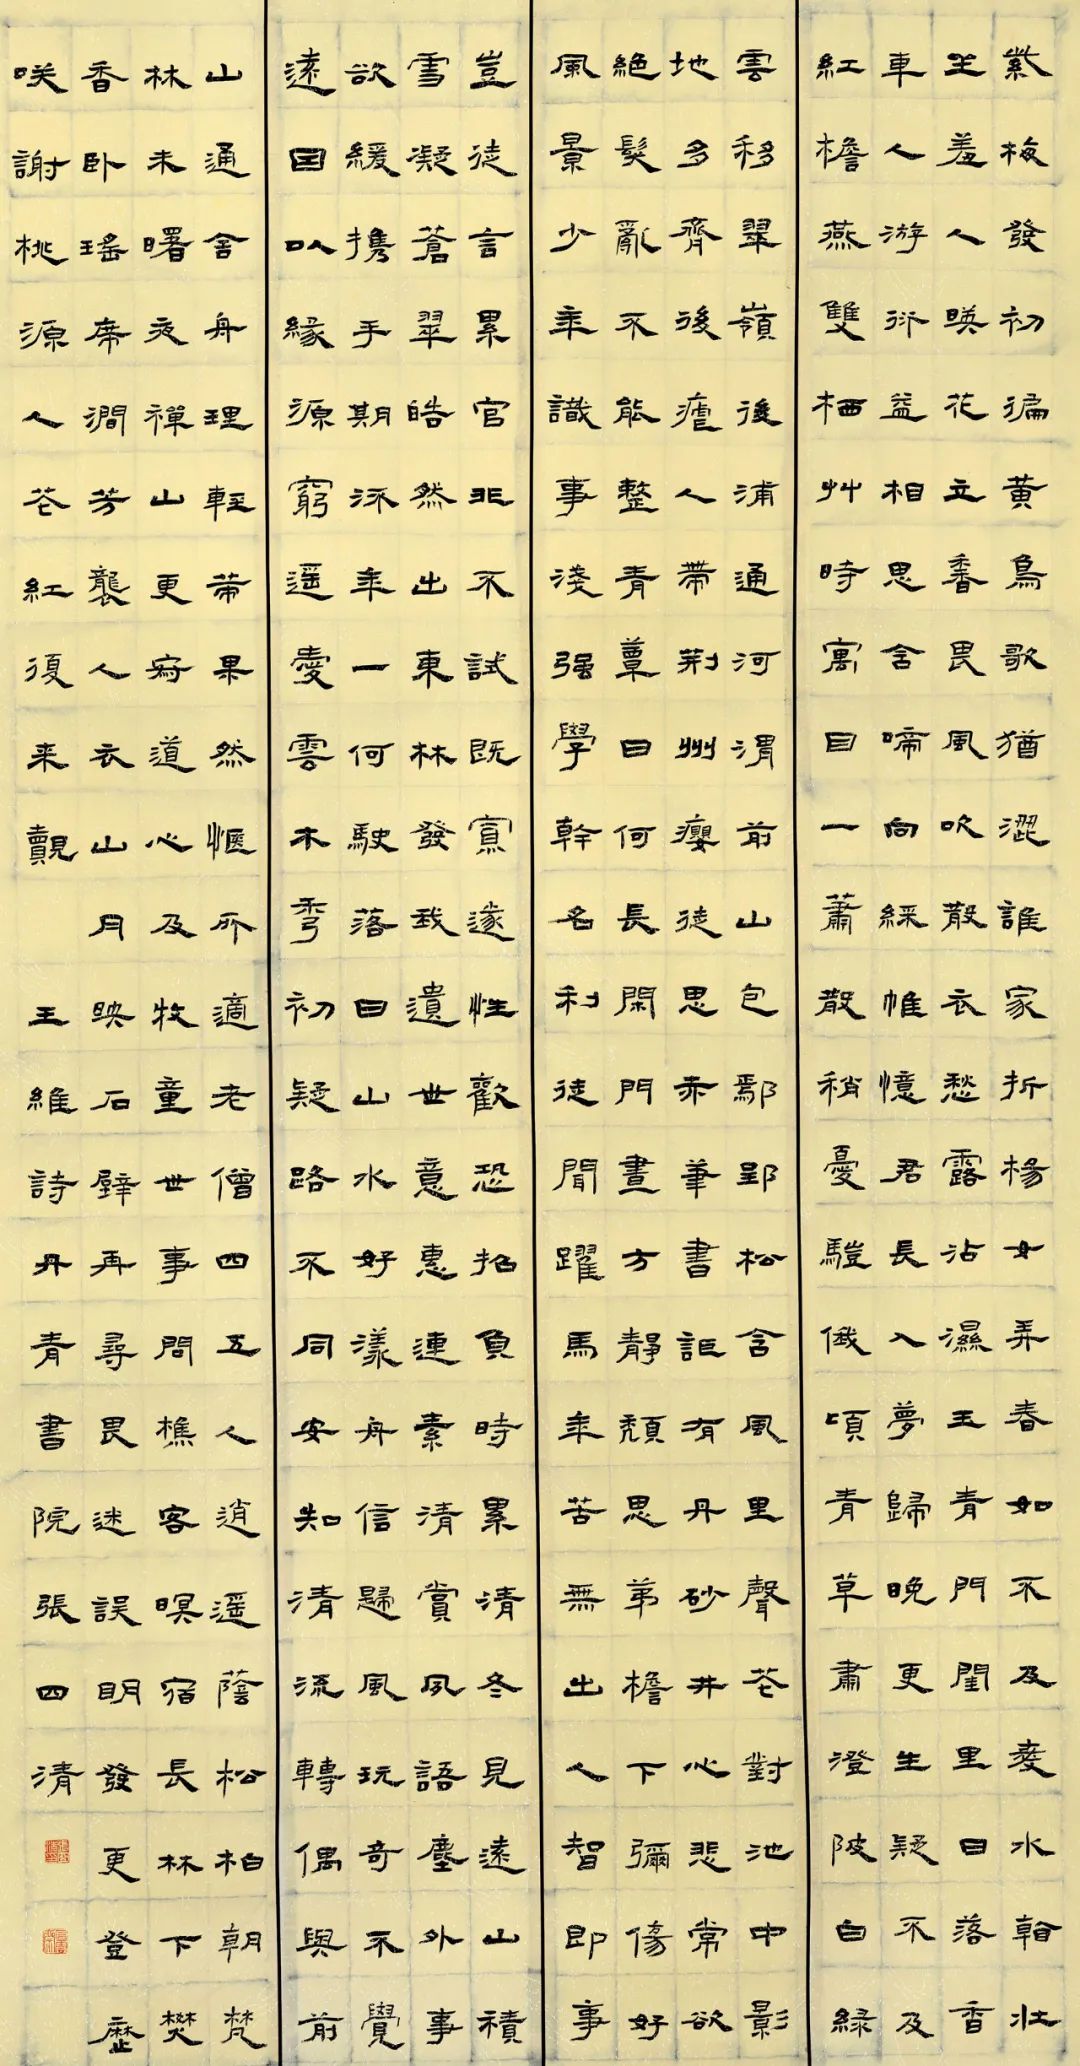 紫梅發初徧黃鳥歌猶澀誰家折楊女弄春如不及愛水看妝
坐羞人暎花立香畏風吹散衣愁露沾濕玉青門閨里日落香
車人游衍益相思含啼向綵帷憶君長入夢歸晚更生疑不及
紅檐燕雙栖艸時寓目一蕭散稍憂俄頃青草肅澄陂白綠
雲移翠嶺後浦通河渭前山包鄢郢松含風里聲花對池中影
地多齊後瘧人帶荆州癭徒思赤筆書詎有丹砂井心悲常欲
絕髮亂不能整青簟日何長閑門晝方靜頹思茅檐下彌傷好
風景少年識事淺强學幹名利徒聞躍馬年苦無出人智即事
豈徒言累官非不試既寡遂性歡恐招負時累清冬見遠山積
雪凝蒼翠皓然出東林發我遺世意惠連素清賞夙語塵外事
欲緩攜手期流年一何駛落日山水好漾舟信歸風玩奇不覺
遠因以緣源窮遥愛雲木秀初疑路不同安知清流轉偶與前
山通舍舟理輕策果然愜所適老僧四五人逍遥蔭松柏朝梵
林未曙夜禪山更寂道心及牧童世事問樵客暝宿長林下焚
香卧瑤席澗芳襲人衣山月映石壁再尋畏迷誤明發更登歷
笑謝桃源人花紅復来覿 王維詩丹青書院張四清